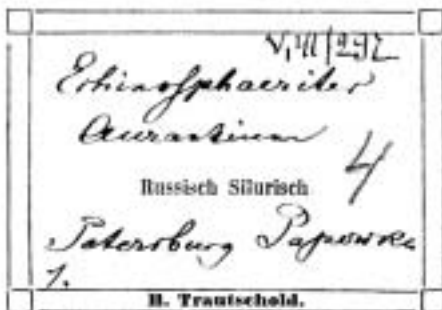 V,VII/292
Echinosphaerites
Aurantium
4
Russisch Silurisch
Petersburg Papowka
1.
H. Trautschold.